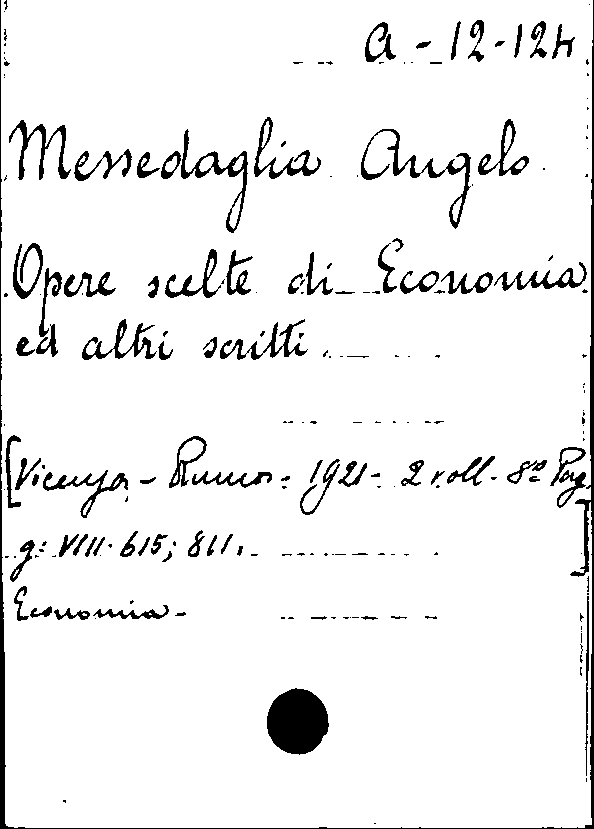 A - 12-124
Messedaglia Angelo
Opere scelte di Economia
ed altri scritti.
[Vicenza - Rumor - 1921 - 2 voll. 8º Pag
g: VIII. 615; 811. ]
Economia -